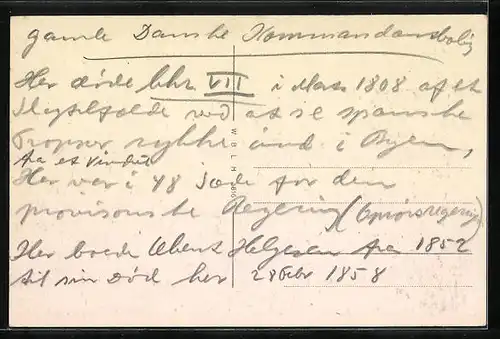 gamle Danske Kommandantbolig
Her døde Chr VII i Mars 1808 af et
Slagtilfælde ved at se spanske
Tropper rykke ind i Byen,
fra et Vindue
Her var i 48 Sæde for den
provisoriske Regering (Oprørsregering)
Her boede Helgesen fra 1852
til sin Død her 28 Febr 1858